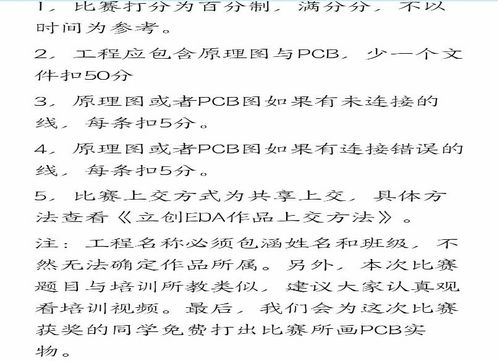 1, 比赛打分为百分制, 满分分, 不以
时间为参考。
2, 工程应包含原理图与PCB, 少一个文
件扣50分
3, 原理图或者PCB图如果有未连接的
线, 每条扣5分。
4, 原理图或者PCB图如果有连接错误的
线, 每条扣5分。
5, 比赛上交方式为共享上交, 具体方
法查看《立创EDA作品上交方法》。
注: 工程名称必须包涵姓名和班级, 不
然无法确定作品所属。另外, 本次比赛
题目与培训所教类似, 建议大家认真观
看培训视频。最后, 我们会为这次比赛
获奖的同学免费打出比赛所画PCB实
物。